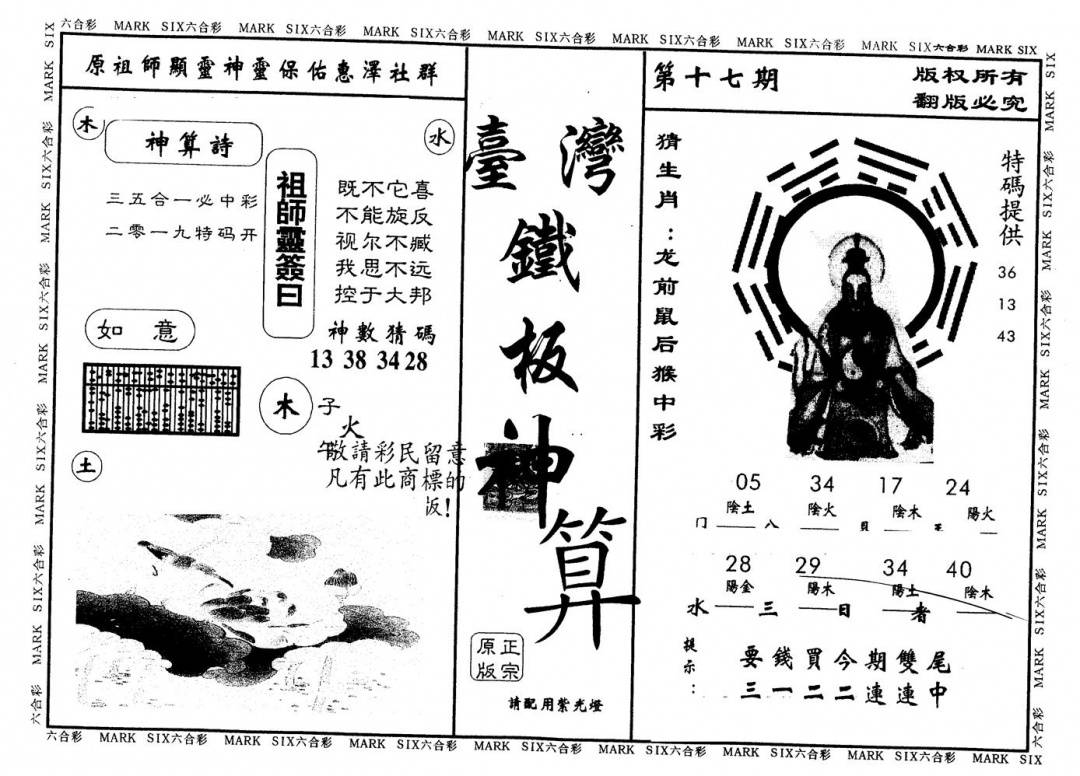 六合彩 MARK SIX六合彩 MARK SIX六合彩 MARK SIX六合彩 MARK SIX六合彩 MARK SIX六合彩 MARK SIX六合彩 MARK SIX六合彩 MARK SIX
原祖師顯靈神靈保佑惠澤社群
木
神算詩
水
三五合一必中彩
二零一九特码开
祖師靈簽曰
既不它喜
不能旋反
视尔不臧
我思不远
控于大邦
如意
神數猜碼
13 38 34 28
木
子
火
午敬請彩民留意
凡有此商標的
版!
土
臺灣
鐵
板
神
算
原正
版宗
請配用紫光燈
第十七期
版权所有
翻版必究
猜生肖:龙前鼠后猴中彩
特碼提供
36
13
43
05 34 17 24
陰土 陰火 陰木 陽火
门 八 貝
28 29 34 40
陽金 陽木 陽土 陰木
水 三 日 者
提示:
要錢買今期雙尾
三一二二連連中
六合彩 MARK SIX六合彩 MARK SIX六合彩 MARK SIX六合彩 MARK SIX六合彩 MARK SIX六合彩 MARK SIX六合彩 MARK SIX六合彩 MARK SIX
MARK SIX六合彩 MARK SIX六合彩 MARK SIX六合彩 MARK SIX六合彩 MARK SIX
MARK SIX六合彩 MARK SIX六合彩 MARK SIX六合彩 MARK SIX六合彩 MARK SIX